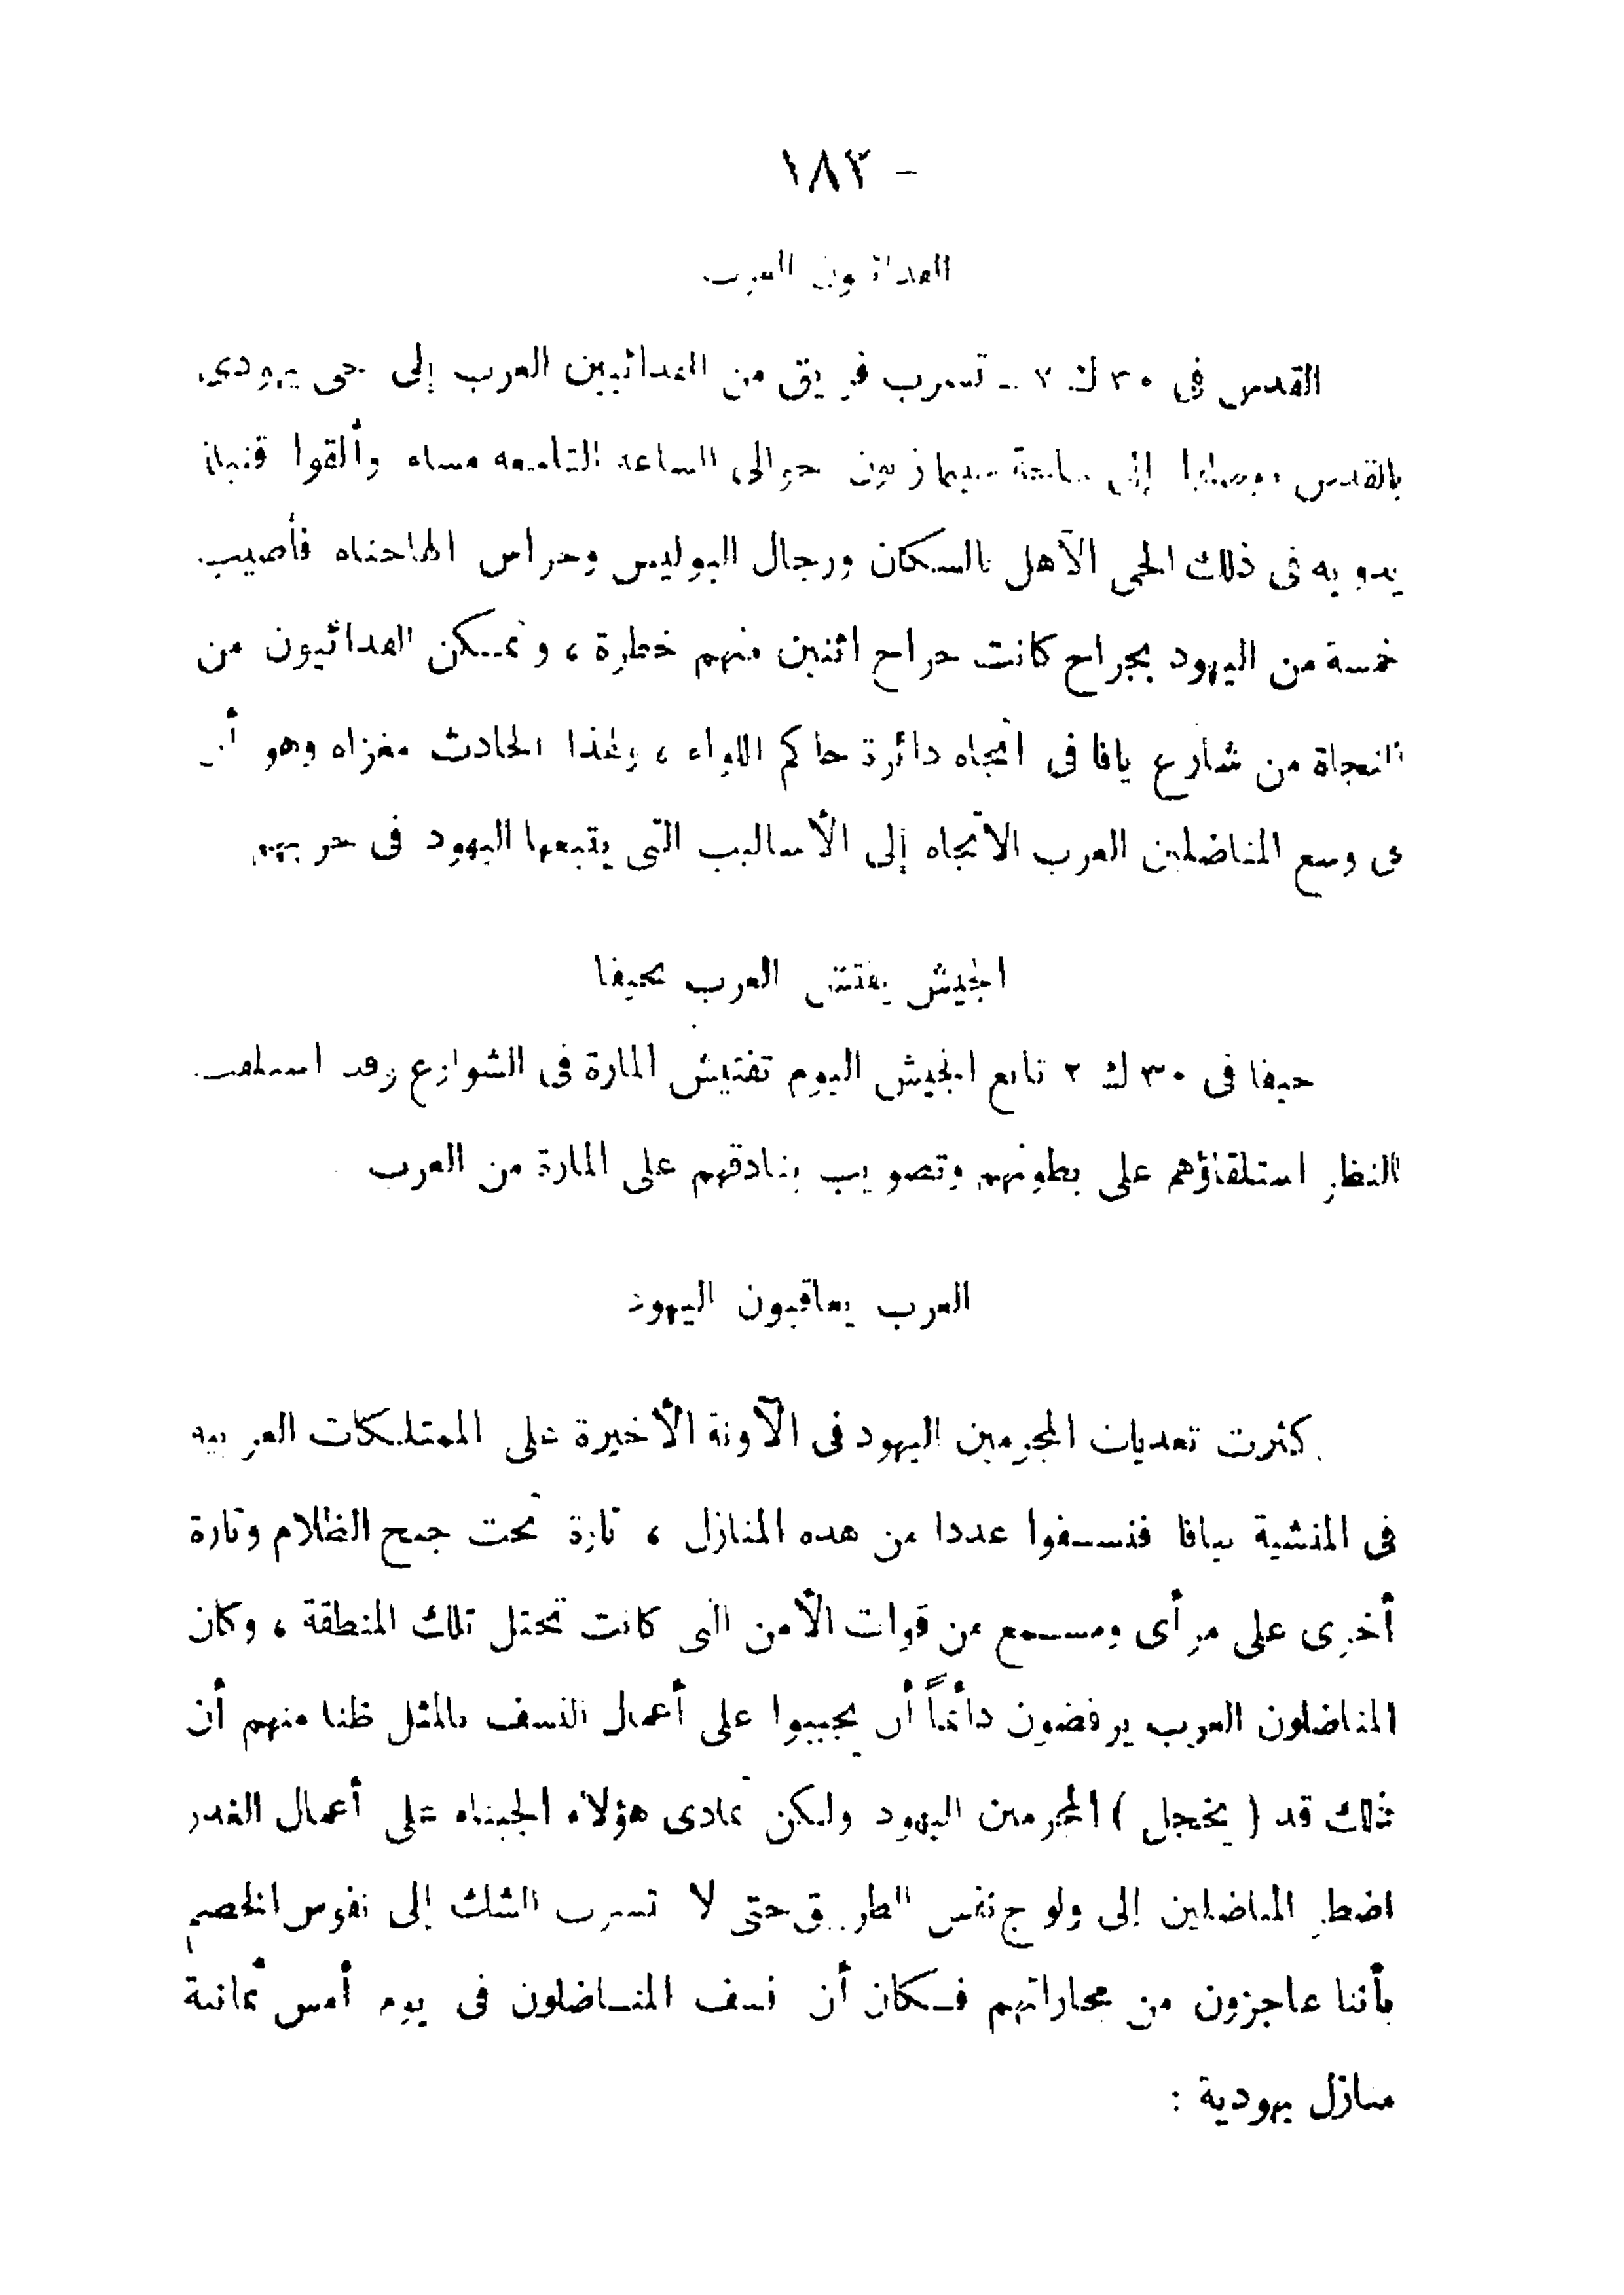 ١٨٢ -
الفدائيون العرب
القدس فى ٣٠ ك ٢ - تسرب فريق من الفدائيين العرب إلى حى يهودى
بالقدس ووصلوا إلى ساحة سينما زيون حوالى الساعة التاسعة مساء وألقوا قنبلة
يدوية فى ذلك الحى الآهل بالسكان ورجال البوليس وحراس الهاجناه فأصيب
خمسة من اليهود بجراح كانت جراح اثنين منهم خطرة ، وتمكن الفدائيون من
النجاة من شارع يافا فى اتجاه دائرة حاكم اللواء ، ولهذا الحادث مغزاه وهو أن
فى وسع المناضلين العرب الاتجاه إلى الأساليب التى يتبعها اليهود فى حربهم
الجيش يفتش العرب بحيفا
حيفا فى ٣٠ ك ٢ تابع الجيش اليوم تفتيش المارة فى الشوارع وقد استلفت
النظر استلقاؤهم على بطونهم وتصويب بنادقهم على المارة من العرب
العرب يعاقبون اليهود
كثرت تعديات المجرمين اليهود فى الآونة الأخيرة على الممتلكات العربية
فى المنشية بيافا فنسفوا عددا من هده المنازل ، تارة تحت جنح الظلام وتارة
أخرى على مرأى ومسمع من قوات الأمن التى كانت تحتل تلك المنطقة ، وكان
المناضلون العرب يرفضون دائماً أن يجيبوا على أعمال النسف بالمثل ظنا منهم أن
ذلك قد ( يخجل ) المجرمين اليهود ولكن تمادى هؤلاء الجبناء على أعمال الغدر
اضطر المناضلين إلى ولوج نفس الطريق حتى لا تسرب الشك إلى نفوس الخصم
بأننا عاجزون من مجاراتهم فكان أن نسف المناضلون فى يوم أمس ثمانية
منازل يهودية :